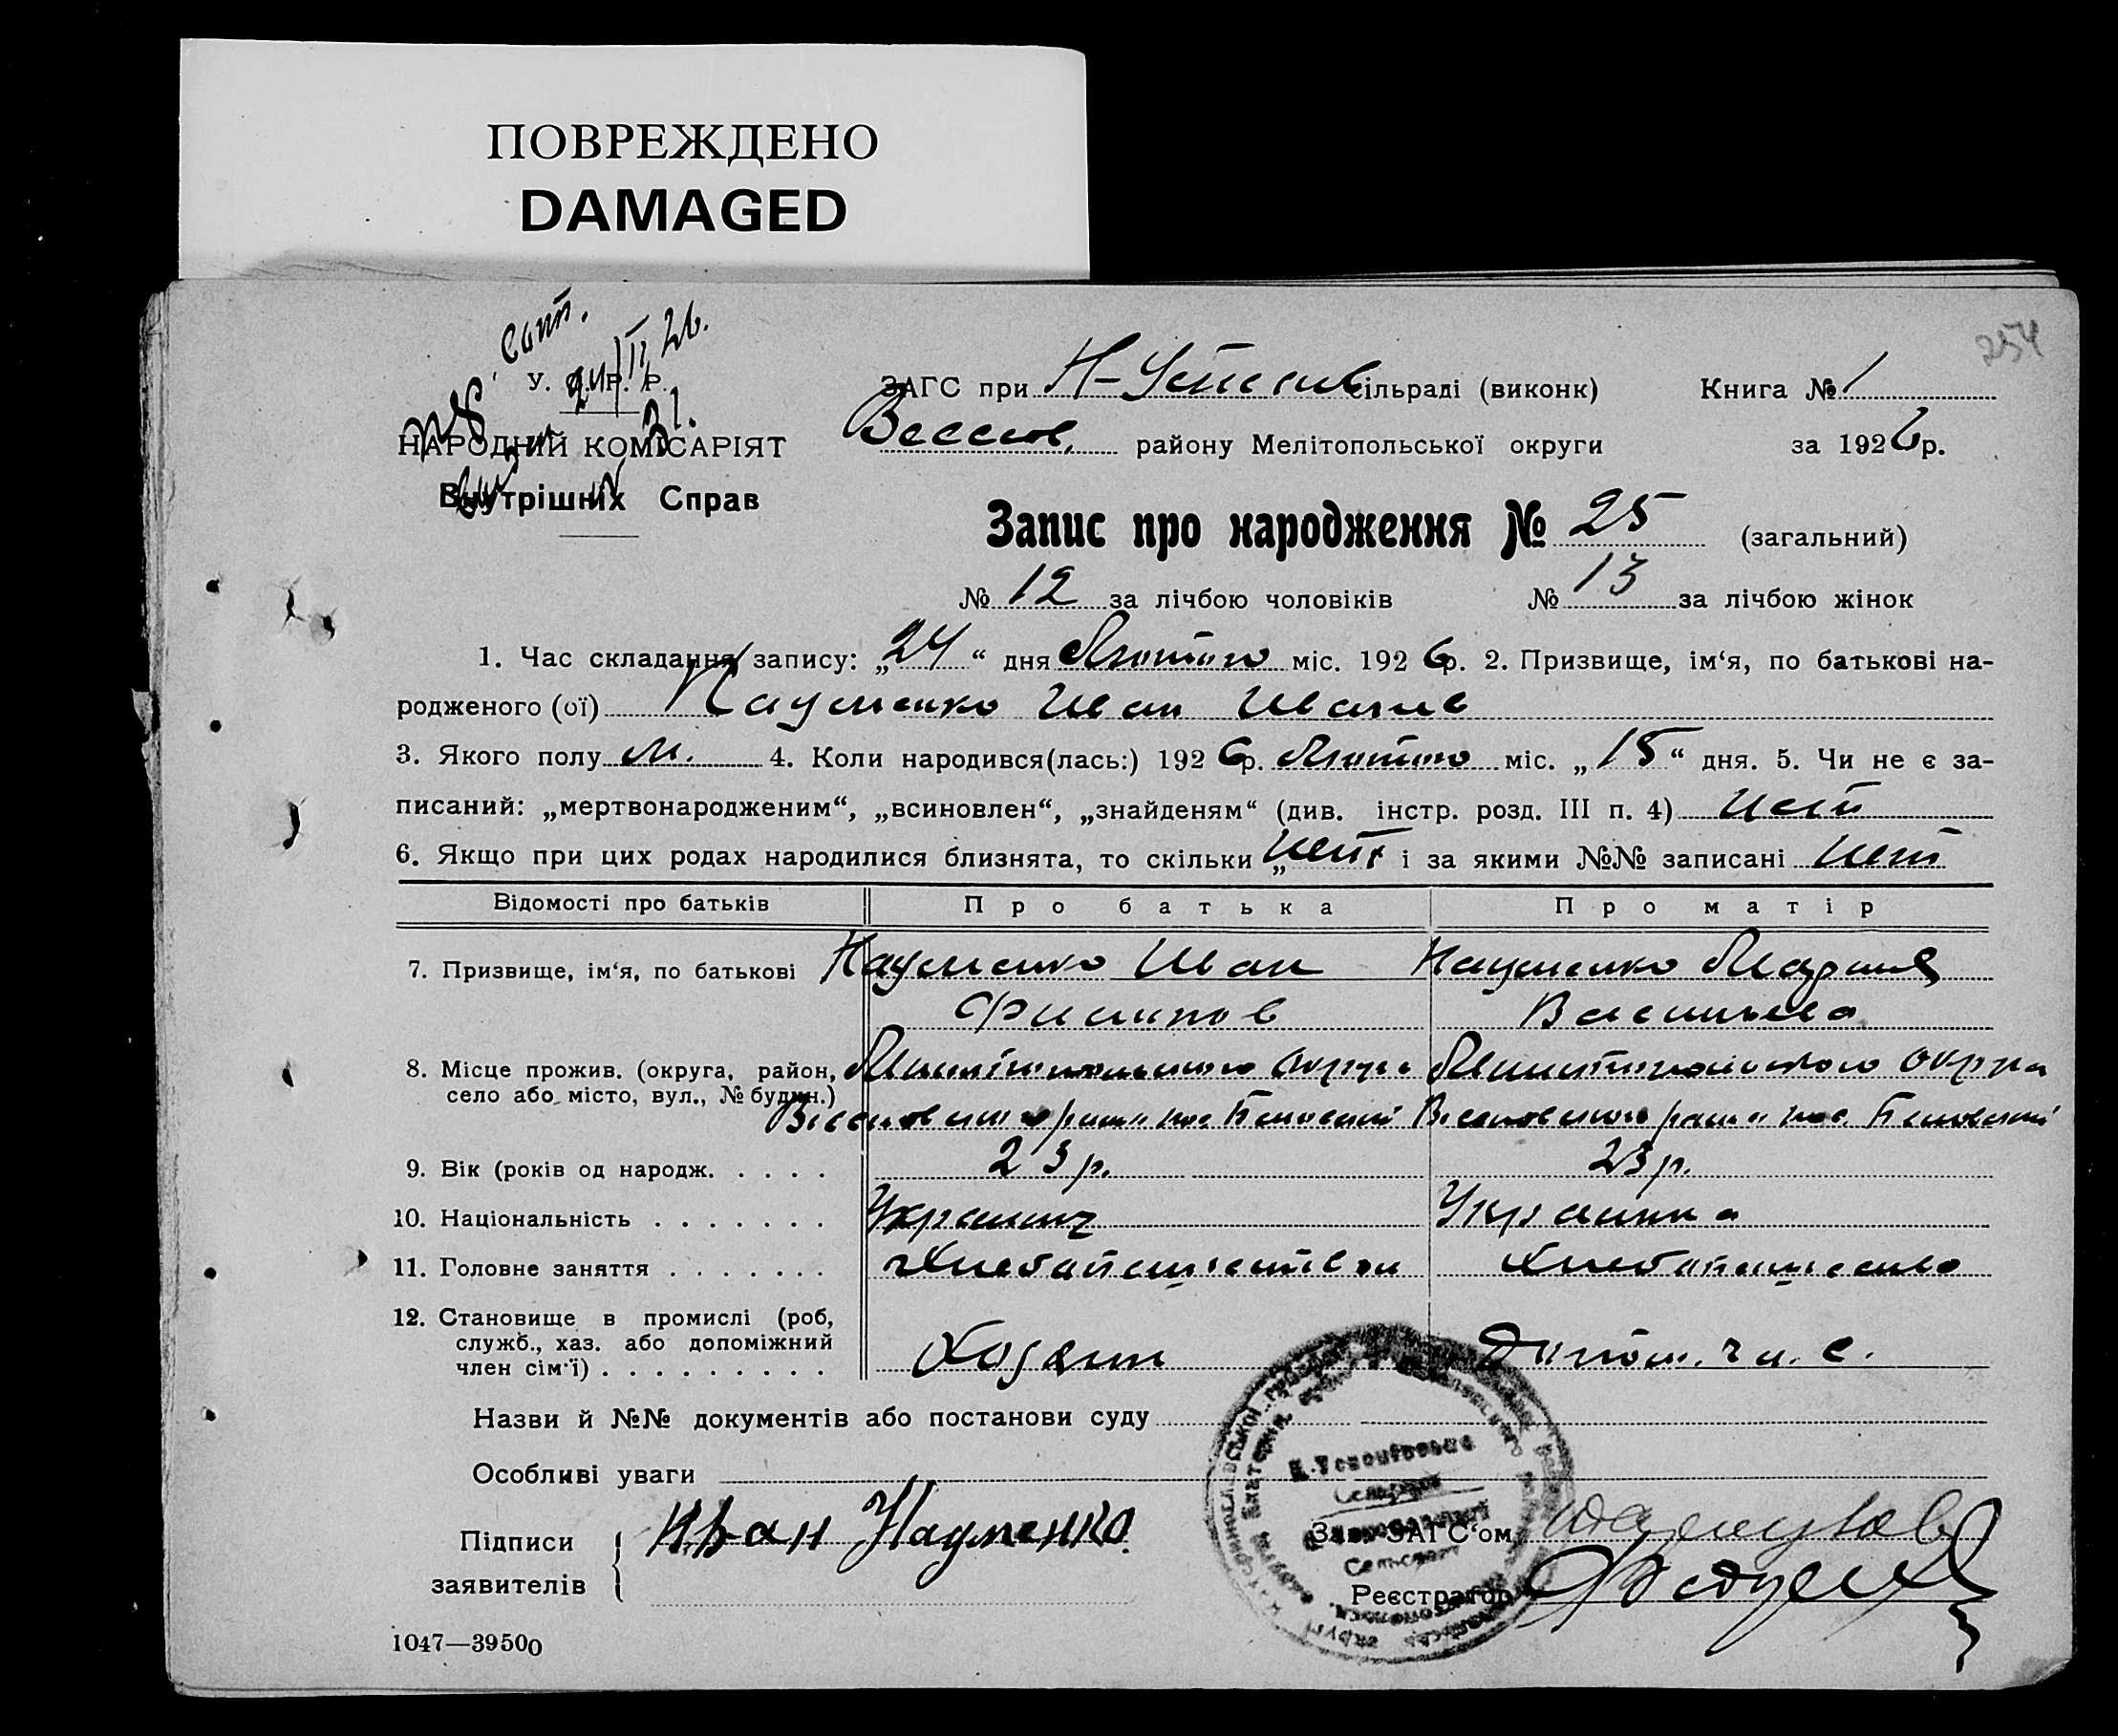 ПОВРЕЖДЕНО
DAMAGED
254
У. С. Р. Р.
НАРОДНИЙ КОМІСАРІЯТ
Внутрішніх Справ
ЗАГС при Н- сільраді (виконк) Книга № 1
Весел. району Мелітопольської округи за 1926 р.
Запис про народження № 25 (загальний)
№ 12 за лічбою чоловіків № 13 за лічбою жінок
1. Час складання запису: „24“ дня Лютого міс. 1926 р. 2. Призвище, ім‘я, по батькові на-
родженого (ої) Науменко Иван Иванов
3. Якого полу м. 4. Коли народився(лась:) 1926 р. Лютого міс. „15“ дня. 5. Чи не є за-
писаний: „мертвонародженим“, „всиновлен“, „знайденям“ (див. інстр. розд. III п. 4) нет
6. Якщо при цих родах народилися близнята, то скільки „нет і за якими №№ записані нет
Відомості про батьків Про батька Про матір
7. Призвище, ім‘я, по батькові Науменко Иван Науменко Мария
Филипов Васильева
8. Місце прожив. (округа, район, Мелитопольского округа Мелитопольского округа
село або місто, вул., № будин.) Веселовского района пос. Веселовского района пос.
9. Вік (років од народж. . . . . 23 р. 23 р.
10. Національність . . . . . . . Украинец Украинка
11. Головне заняття . . . . . . . Хлебопашество
12. Становище в промислі (роб,
служб., хаз. або допоміжний
член сім‘ї) . . . . . . . . . Хозяин Допом. чл. с.
Назви й №№ документів або постанови суду
Особливі уваги
Підписи Иван Науменко Зав. ЗАГС‘ом
заявителів Реєстратор
1047—39500